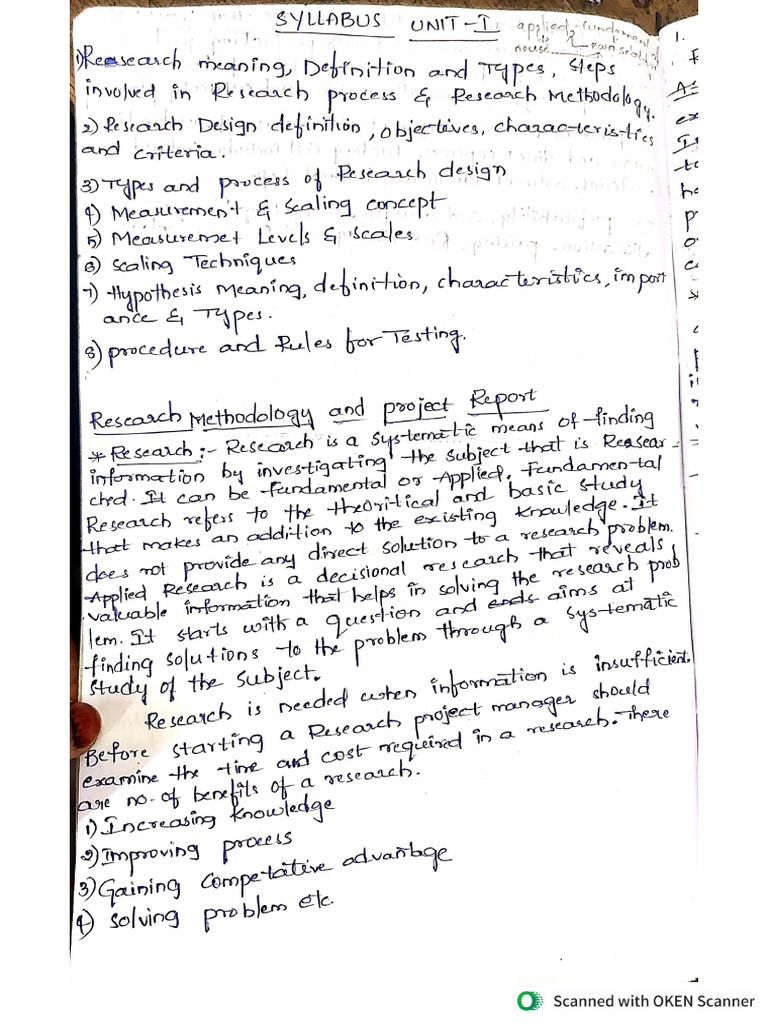 SYLLABUS UNIT-I
applied, fundament
1) Reasearch meaning, Definition and Types, Steps
involved in Research process & Research Methodology.
2) Research Design definition, objectives, characteristics
and criteria.
3) Types and process of Research design
4) Measurement & Scaling concept
5) Measuremet Levels & Scales
6) Scaling Techniques
7) Hypothesis Meaning, definition, characteristics, import
ance & Types.
8) procedure and Rules for Testing.
Research Methodology and project Report
* Research :- Research is a systematic means of finding
information by investigating the subject that is Reasear-
ched. It can be fundamental or Applied. Fundamental
Research refers to the theoritical and basic study
that makes an addition to the existing knowledge. It
does not provide any direct solution to a research problem.
Applied Research is a decisional research that reveals
valuable information that helps in solving the research prob
lem. It starts with a question and ends aims at
finding solutions to the problem through a systematic
study of the subject.
Research is needed when information is insufficient.
Before starting a Research project manager should
examine the time and cost required in a research. There
are no. of benefits of a research.
1) Increasing knowledge
2) Improving process
3) Gaining competative advantage
4) Solving problem etc.
Scanned with OKEN Scanner